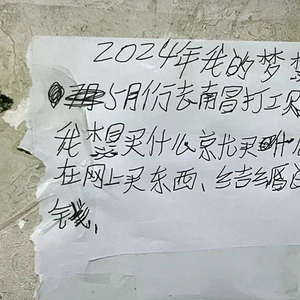 2024年我的梦想
5月份去南昌打工
我想买什么就买什么
在网上买东西、结婚
钱、